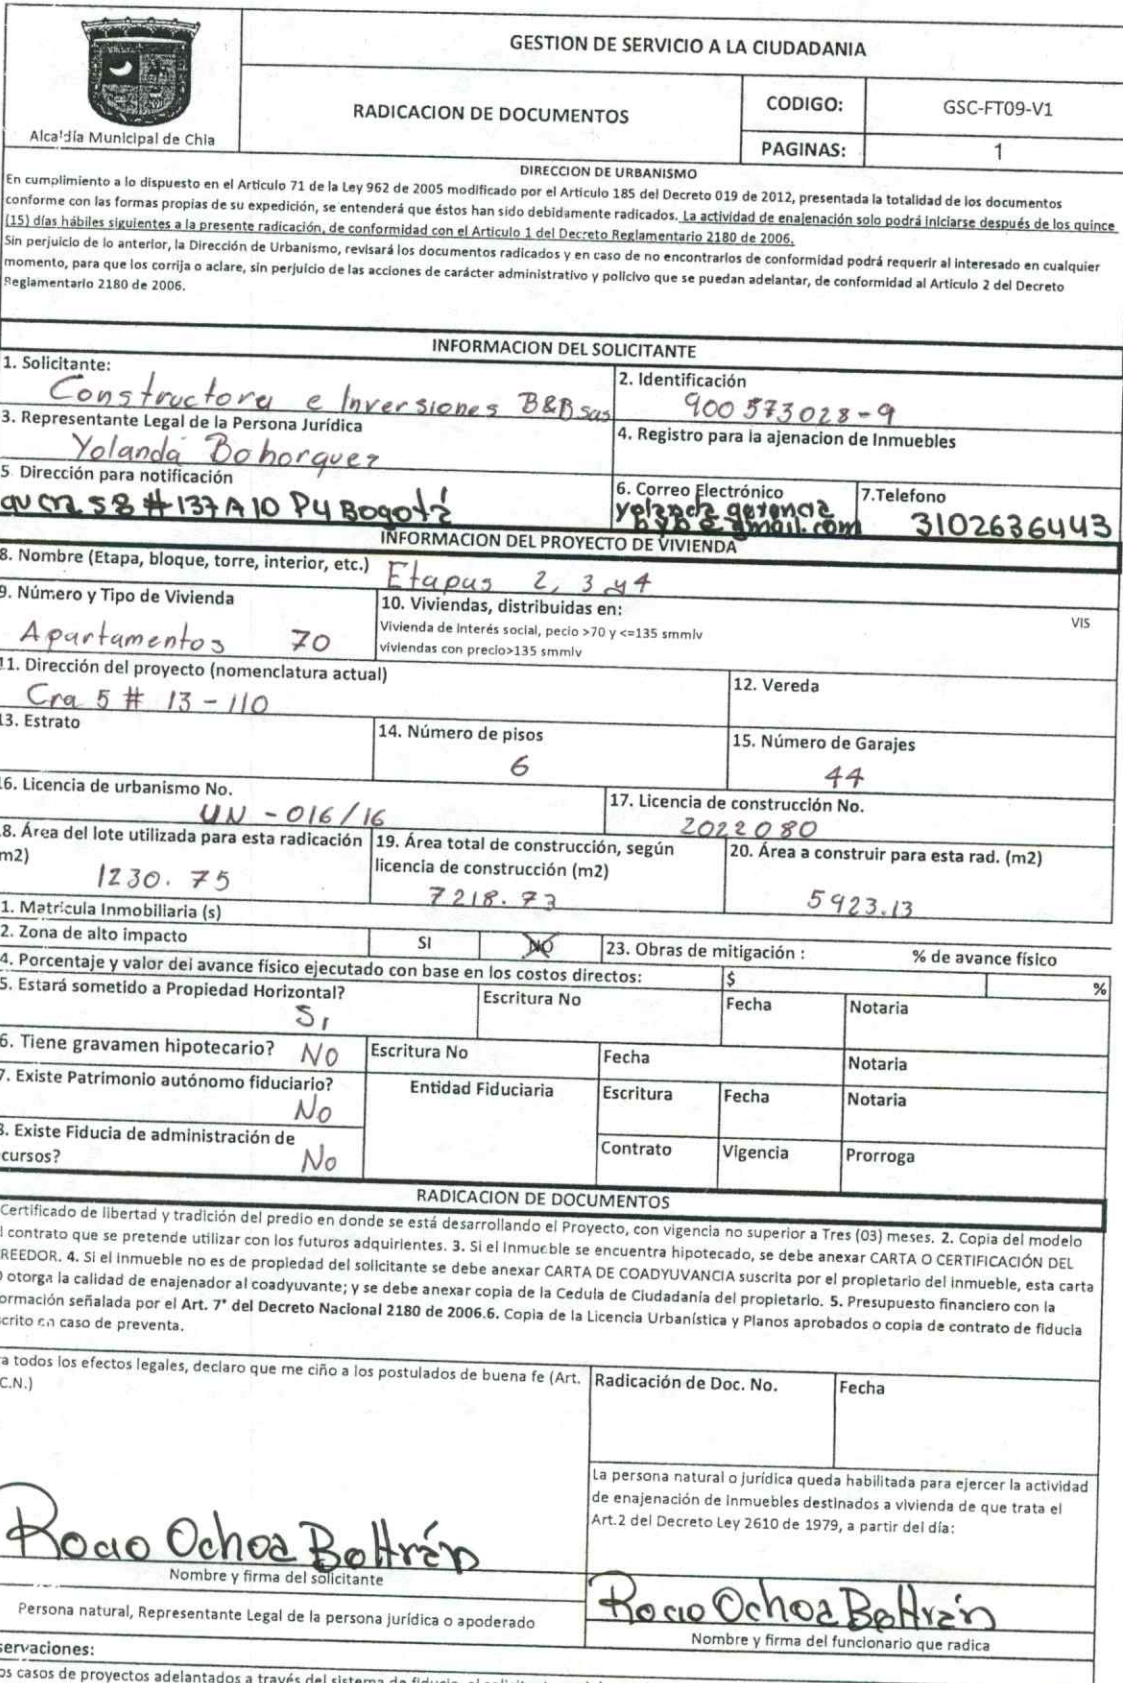 GESTION DE SERVICIO A LA CIUDADANIA
RADICACION DE DOCUMENTOS
CODIGO:
GSC-FT09-V1
Alcaldía Municipal de Chia
PAGINAS:
1
DIRECCION DE URBANISMO
En cumplimiento a lo dispuesto en el Articulo 71 de la Ley 962 de 2005 modificado por el Articulo 185 del Decreto 019 de 2012, presentada la totalidad de los documentos
conforme con las formas propias de su expedición, se entenderá que éstos han sido debidamente radicados. La actividad de enajenación solo podrá iniciarse después de los quince
(15) días hábiles siguientes a la presente radicación, de conformidad con el Articulo 1 del Decreto Reglamentario 2180 de 2006.
Sin perjuicio de lo anterior, la Dirección de Urbanismo, revisará los documentos radicados y en caso de no encontrarlos de conformidad podrá requerir al interesado en cualquier
momento, para que los corrija o aclare, sin perjuicio de las acciones de carácter administrativo y policivo que se puedan adelantar, de conformidad al Articulo 2 del Decreto
Reglamentario 2180 de 2006.
INFORMACION DEL SOLICITANTE
1. Solicitante:
Constructora e Inversiones B&B sas
2. Identificación
900573028-9
3. Representante Legal de la Persona Jurídica
Yolanda Bohorquez
4. Registro para la ajenacion de Inmuebles
5 Dirección para notificación
cra 58 # 137A 10 P4 Bogotá
6. Correo Electrónico
yolanda gerencia
byb@gmail.com
7.Telefono
3102636443
INFORMACION DEL PROYECTO DE VIVIENDA
8. Nombre (Etapa, bloque, torre, interior, etc.)
Etapas 2, 3 y 4
9. Número y Tipo de Vivienda
Apartamentos 70
10. Viviendas, distribuidas en:
Vivienda de Interés social, pecio >70 y <=135 smmlv
VIS
viviendas con precio>135 smmlv
11. Dirección del proyecto (nomenclatura actual)
Cra 5 # 13-110
12. Vereda
13. Estrato
14. Número de pisos
6
15. Número de Garajes
44
16. Licencia de urbanismo No.
UN - 016/16
17. Licencia de construcción No.
2022080
8. Área del lote utilizada para esta radicación
m2)
1230.75
19. Área total de construcción, según
licencia de construcción (m2)
7218.73
20. Área a construir para esta rad. (m2)
5923.13
1. Matrícula Inmobiliaria (s)
2. Zona de alto impacto
SI
NO
23. Obras de mitigación :
% de avance físico
4. Porcentaje y valor del avance físico ejecutado con base en los costos directos:
$
%
5. Estará sometido a Propiedad Horizontal?
Si
Escritura No
Fecha
Notaria
6. Tiene gravamen hipotecario? NO
Escritura No
Fecha
Notaria
7. Existe Patrimonio autónomo fiduciario?
No
Entidad Fiduciaria
Escritura
Fecha
Notaria
3. Existe Fiducia de administración de
cursos?
No
Contrato
Vigencia
Prorroga
RADICACION DE DOCUMENTOS
Certificado de libertad y tradición del predio en donde se está desarrollando el Proyecto, con vigencia no superior a Tres (03) meses. 2. Copia del modelo
l contrato que se pretende utilizar con los futuros adquirientes. 3. Si el Inmueble se encuentra hipotecado, se debe anexar CARTA O CERTIFICACIÓN DEL
REEDOR. 4. Si el Inmueble no es de propiedad del solicitante se debe anexar CARTA DE COADYUVANCIA suscrita por el propietario del inmueble, esta carta
O otorga la calidad de enajenador al coadyuvante; y se debe anexar copia de la Cedula de Ciudadanía del propietario. 5. Presupuesto financiero con la
ormación señalada por el Art. 7° del Decreto Nacional 2180 de 2006.6. Copia de la Licencia Urbanística y Planos aprobados o copia de contrato de fiducia
scrito en caso de preventa.
a todos los efectos legales, declaro que me ciño a los postulados de buena fe (Art.
C.N.)
Radicación de Doc. No.
Fecha
La persona natural o jurídica queda habilitada para ejercer la actividad
de enajenación de Inmuebles destinados a vivienda de que trata el
Art.2 del Decreto Ley 2610 de 1979, a partir del día:
Rocio Ochoa Beltrán
Nombre y firma del solicitante
Persona natural, Representante Legal de la persona jurídica o apoderado
Rocio Ochoa Beltrán
Nombre y firma del funcionario que radica
servaciones:
os casos de proyectos adelantados a través del sistema de fiducia, el solicitante